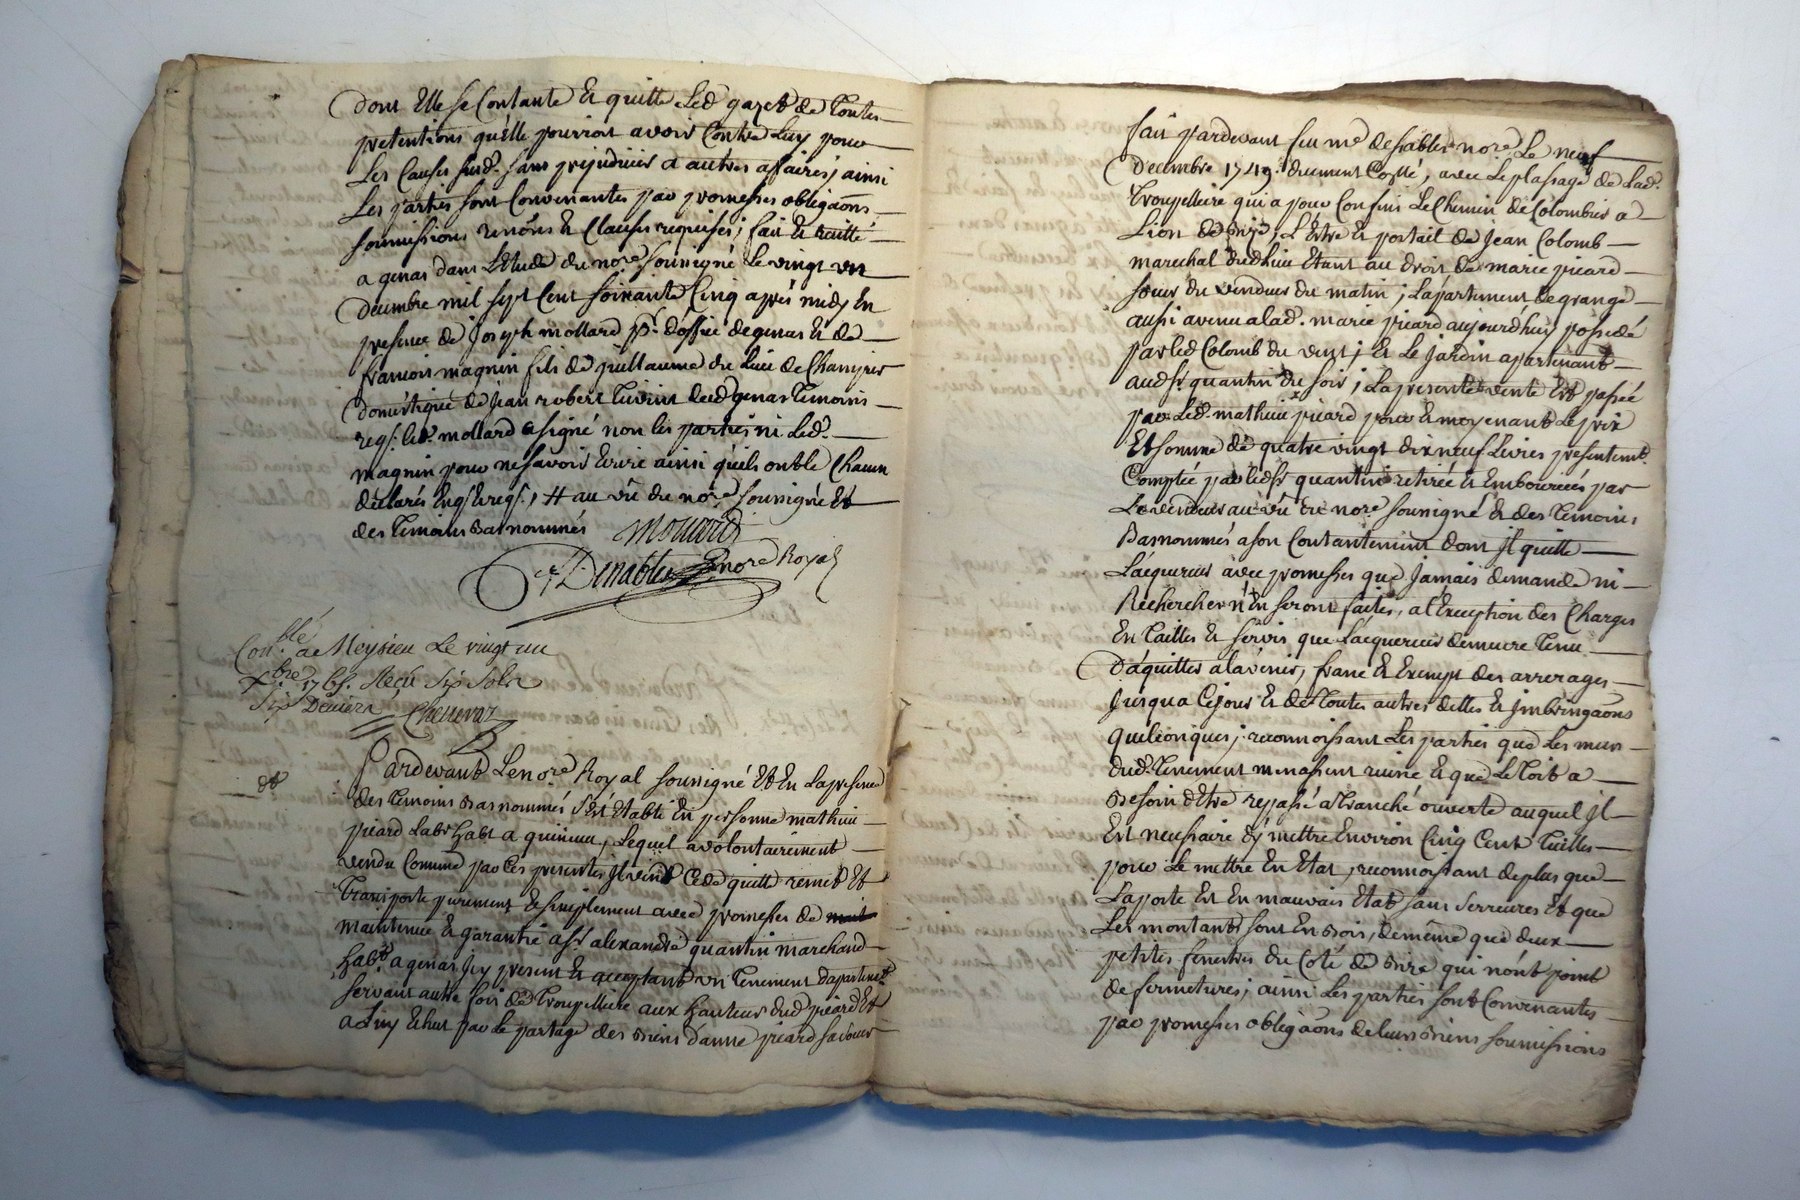 dont Elle se Contante Et quitte Led gazet de toutes
pretentions qu'elle pourroit avoir Contre Luy pour
Les Causes susd. sans prejudicier a autres affaires, ainsi
Les parties sont Convenantes par promesses obligaons
soumissions renons Et Clauses requises; fait Et recitté
a genas dans L'etude du nore soussigné Le vingt un
decembre mil sept Cent soixante Cinq apres midy En
presence de Joseph mollard d'office de genas Et de
francois magnin fils de guillaume du Lieu de
domestique de Jean robert dud genas temoins
req. led. mollard a signé non les parties ni Led.
magnin pour ne savoir Ecrire ainsi qu'ils ont Chacun
declarés Enqs Et reqs. # au vû du nore soussigné Et
des temoins Bas nommés
mollard
Denablet nore Royal
Conblé a Meysieu Le vingt un
Xbre 1765. Reçu Six Sols
Six Deniers
Chenevaz
Pardevant Le nore Royal soussigné Et En La presence
des temoins Bas nommés s'est Etably En personne mathieu
picard Labr habt a Lequel a volontairement
vendu Comme par Ces presentes Il vend Cede quitte remet Et
transporte purement Et simplement avec promesses de
maintenue Et garantie a sr alexandre quantin marchand
habt a genas Icy present Et acceptant un tenement d'apartement
servant autre fois de troupelliere aux hauteurs dud picard Et
a Luy Echut par Le partage des Biens d'anne picard sa sœur
fait pardevant feu me desnables nore Le neuf
Decembre 1749. duement Collé, avec Le passage de Lad.
troupelliere qui a pour Confins Le Chemin de Colombier a
Lion de Bize, L'Estre Et portail de Jean Colomb
marechal dud Lieu Etant au droit de marie picard
sœur du vendeur du matin; L'apartement de grange
aussi avenu a lad. marie picard aujourd'huy possedé
par led Colomb du vent; Et Le Jardin apartenant
aud sr quantin du soir; La presente vente Est passée
par Led. mathieu picard pour Et moyenant Le prix
Et somme de quatre vingt dix neuf Livres presentemt.
Comptée par led sr quantin retirée Et Emboursées par
Le vendeur au vû du nore soussigné Et des temoins
Bas nommés a son Contantement dont Il quitte
L'acquereur avec promesses que Jamais demande ni
Recherche n'En seront faites, a l'Exception des Charges
En tailles Et servis que L'acquereur demeure tenu
D'aquitter a L'avenir, franc Et Exempt des arrerages
Jusqu'a Ce jour Et de toutes autres dettes Et Imbringaons
quelconques; reconnoissant Les parties que Les murs
dud. tenement menassent ruine Et que Le toit a
Besoin d'Etre repassé a tranché ouverte auquel Il
Est necessaire d'y mettre Environ Cinq Cent tuilles
pour Le mettre En Etat, reconnoissant de plus que
La porte Est En mauvais Etat sans serrures Et que
Les montants sont En Bois, de même que deux
petites fenetres du Coté de Bize qui n'ont point
de fermetures; ainsi Les parties sont Convenantes
par promesses obligaons de leurs Biens soumissions